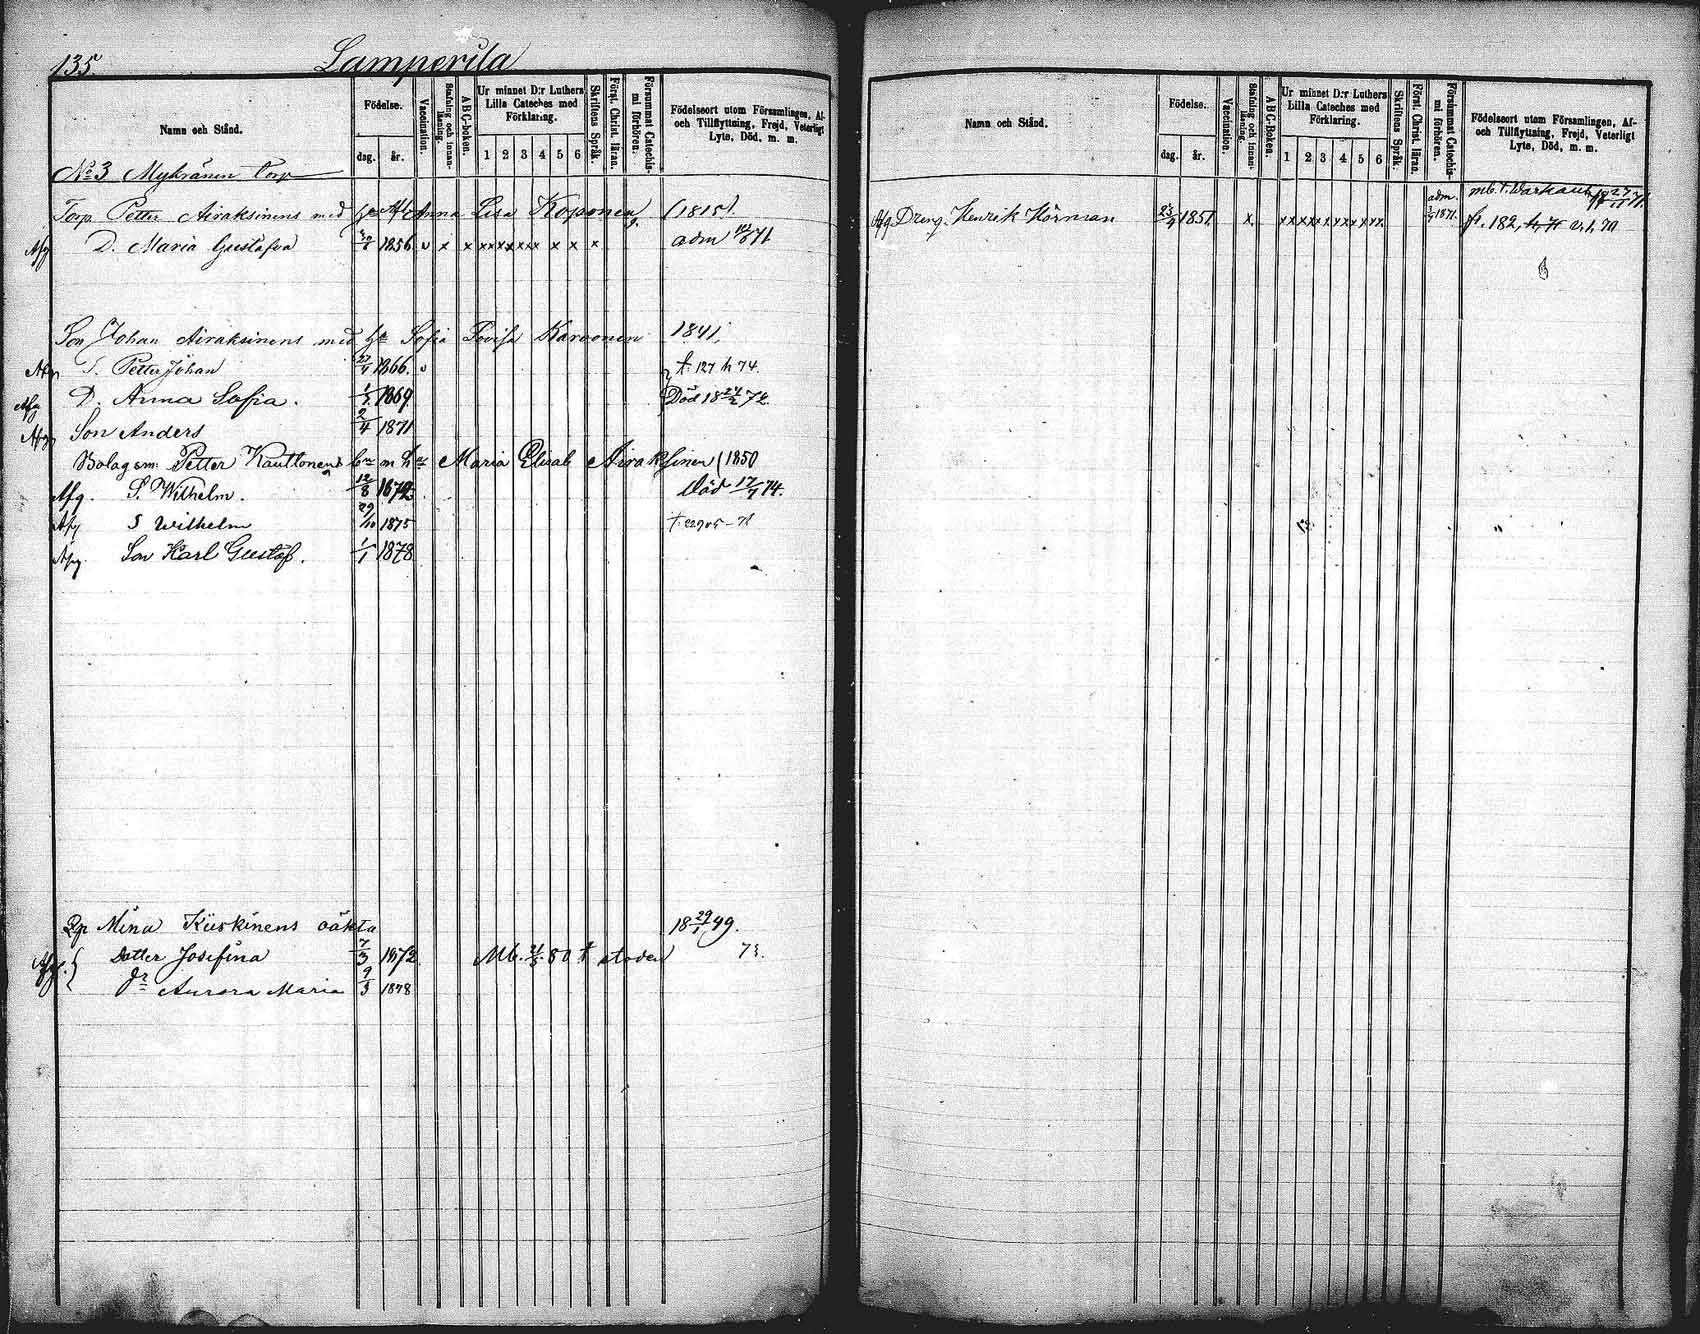 135.
Lamperila
Namn och Stånd.
Födelse.
dag. år.
Vaccination.
Stafning och innanläsning.
ABC-boken.
Ur minnet D:r Luthers Lilla Cateches med Förklaring.
1 2 3 4 5 6
Skriftens Språk.
Först. Christ. läran.
Försummat Catechismi förhören.
Födelseort utom Församlingen, Af- och Tillflyttning, Frejd, Veterligt Lyte, Död, m. m.
No 3 Mykränen Torp
Torp. Petter Airaksinens med Anna Lisa Koponen (1815).
Afg D. Maria Gustafva 1856. v x x x x x x x x x x x adm 71
Son Johan Airaksinens med Sofia Lovisa Karvonen 1841
Afg S. Petter Johan 27/4 1866. v t. 127 h 74.
Afg D. Anna Sofia. 1869. Död 18 72.
Afg Son Anders 2/4 1871
Bolagsm: Petter Kauttonens Maria Elisab Airaksinen (1850
Afg. S. Wilhelm. 12/8 1872. Död 17/4 74.
Afg S Wilhelm 29/10 1875
Afg. Son Karl Gustaf. 1/1 1878
Mina Kiiskinens oäkta 18 29/1 49.
Afg. Dotter Josefina 7/3 1872. Mb. 80 73.
dr Aurora Maria 9/3 1878
Namn och Stånd.
Födelse.
dag. år.
Vaccination.
Stafning och innanläsning.
ABC-Boken.
Ur minnet D:r Luthers Lilla Catheches med Förklaring.
1 2 3 4 5 6
Skriftens Språk.
Först. Christ läran.
Försummat Catechismi förhören.
Födelseort utom Församlingen, Af- och Tillflyttning, Frejd, Veterligt Lyte, Död, m. m.
mb. t. Warkaus 71.
Afg Dreng. Henrik Hörman 23/9 1851. x. x x x x x x x x x adm. 1871. fr. 182,